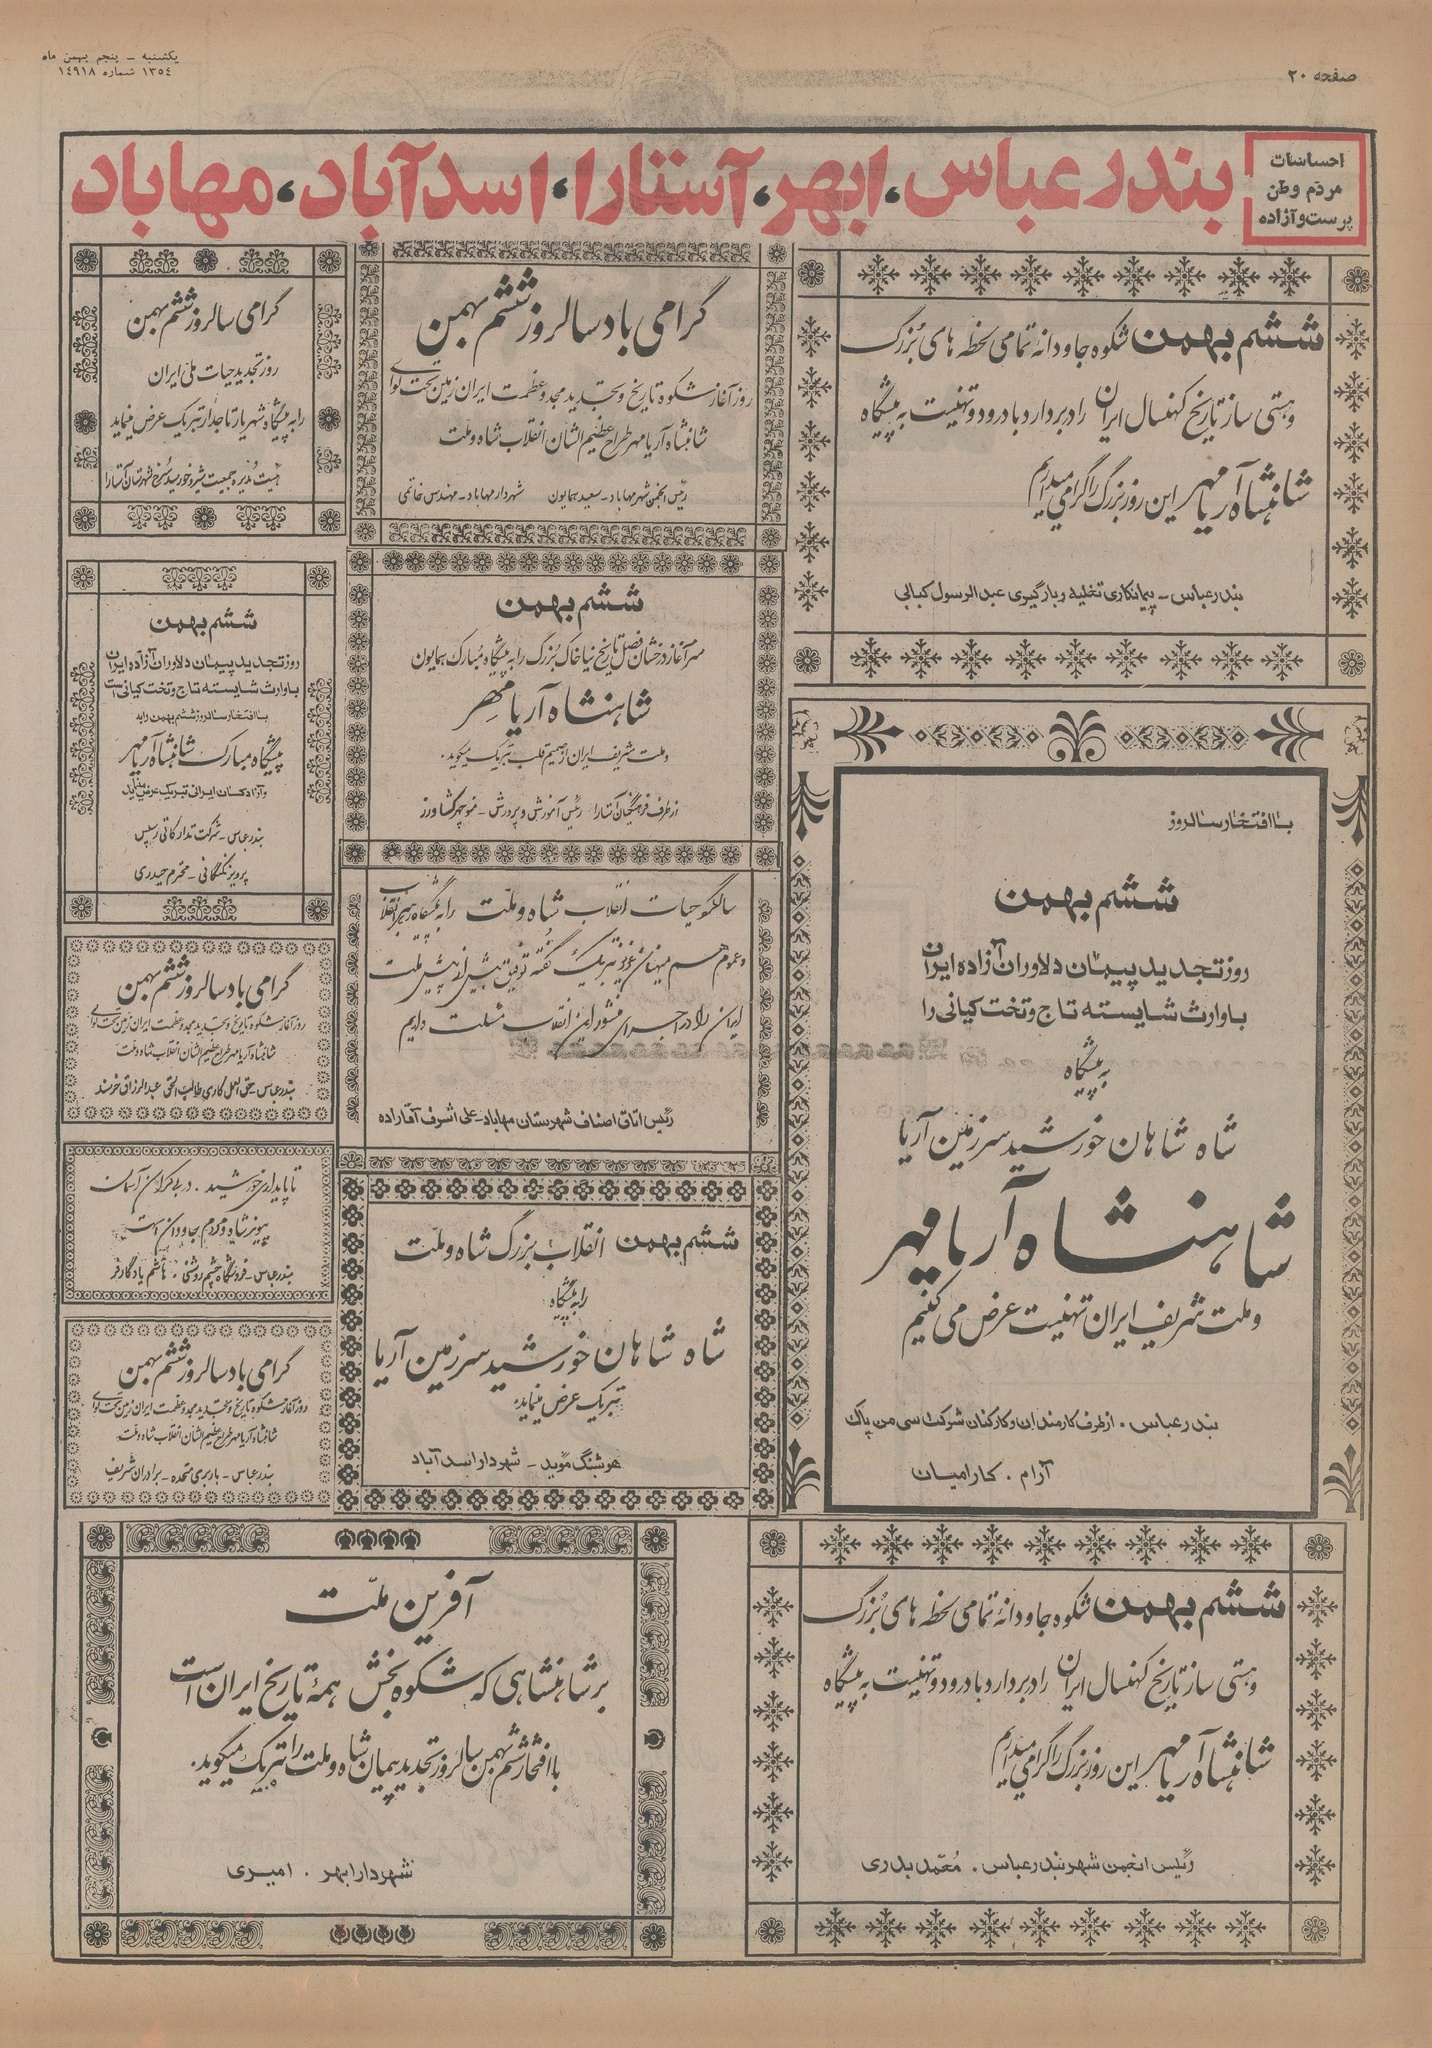 صفحه ۲۰
یکشنبه ـ پنجم بهمن ماه
۱۳۵٤ شماره ۱٤۹۱۸
احساسات
مردم وطن
پرست و آزاده
بندرعباس، ابهر، آستارا، اسدآباد، مهاباد
ششم بهمن شکوه جاودانهٔ تمامی لحظه های بزرگ
وهستی ساز تاریخ کهنسال ایران را دربردارد با درود و تهنیت به پیشگاه
شاهنشاه آریامهر این روز بزرگ را گرامی میداریم
بندرعباس ـ پیمانکاری تخلیه و بارگیری عبدالرسول کبالی
گرامی باد سالروز ششم بهمن
روز آغاز شکوه تاریخ و تجدید مجد و عظمت ایران زمین تحت لوای
شاهنشاه آریامهر طراح عظیم الشأن انقلاب شاه و ملت
رئیس انجمن شهر مهاباد ـ سعید همایون شهردار مهاباد ـ مهندس خاتمی
گرامی سالروز ششم بهمن
روز تجدید حیات ملی ایران
را به پیشگاه شهریار تاجدار تبریک عرض مینماید
هیئت مدیره جمعیت شیر و خورشید سرخ شهرستان آستارا
ششم بهمن
سرآغاز درخشان فصل تاریخ نیاخاک بزرگ را به پیشگاه مبارک همایون
شاهنشاه آریامهر
و ملت شریف ایران از صمیم قلب تبریک میگوید.
از طرف فرهنگیان آستارا رئیس آموزش و پرورش ـ منوچهر کشاورز
ششم بهمن
روز تجدید پیمان دلاوران آزاده ایران
با وارث شایسته تاج و تخت کیانی است
با افتخار سالروز ششم بهمن را به
پیشگاه مبارک شاهنشاه آریامهر
و آزادگان ایرانی تبریک عرض مینماید
بندرعباس ـ شرکت تدارکاتی
پرویز ـ محرم حیدری
با افتخار سالروز
ششم بهمن
روز تجدید پیمان دلاوران آزاده ایران
با وارث شایسته تاج و تخت کیانی را
به پیشگاه
شاه شاهان خورشید سرزمین آریا
شاهنشاه آریامهر
و ملت شریف ایران تهنیت عرض می کنیم
بندرعباس . از طرف کارمندان و کارکنان شرکت سی من پاک
آرام . کارامیان
سالگرد حیات انقلاب شاه و ملت را به پیشگاه رهبر انقلاب
و عموم هم میهنان عزیز تبریک گفته توفیق بیش از پیش ملت
ایران را در اجرای منشور این انقلاب مسئلت داریم
رئیس اتاق اصناف شهرستان مهاباد ـ علی اشرف آقازاده
گرامی باد سالروز ششم بهمن
روز آغاز شکوه تاریخ و تجدید مجد و عظمت ایران زمین تحت لوای
شاهنشاه آریامهر طراح عظیم الشأن انقلاب شاه و ملت
بندرعباس ـ حق العمل کاری طالب الحق عبدالرزاق خرمند
تا پایداری خورشید . در بی کران آسمان
پیوند شاه و مردم جاودان است
بندرعباس ـ فروشگاه چشم روشنی . هاشم یادگارفر
ششم بهمن انقلاب بزرگ شاه و ملت
را به پیشگاه
شاه شاهان خورشید سرزمین آریا
تبریک عرض مینماید.
هوشنگ موید ـ شهردار اسدآباد
گرامی باد سالروز ششم بهمن
روز آغاز شکوه تاریخ و تجدید مجد و عظمت ایران زمین تحت لوای
شاهنشاه آریامهر طراح عظیم الشأن انقلاب شاه و ملت
بندرعباس ـ باربری متحده ـ برادران شریف
ششم بهمن شکوه جاودانهٔ تمامی لحظه های بزرگ
وهستی ساز تاریخ کهنسال ایران را دربردارد با درود و تهنیت به پیشگاه
شاهنشاه آریامهر این روز بزرگ را گرامی میداریم
رئیس انجمن شهر بندرعباس . محمد بدری
آفرین ملت
بر شاهنشاهی که شکوه بخش همهٔ تاریخ ایران است
با افتخار ششم بهمن سالروز تجدید پیمان شاه و ملت را تبریک میگوید.
شهردار ابهر . امیری